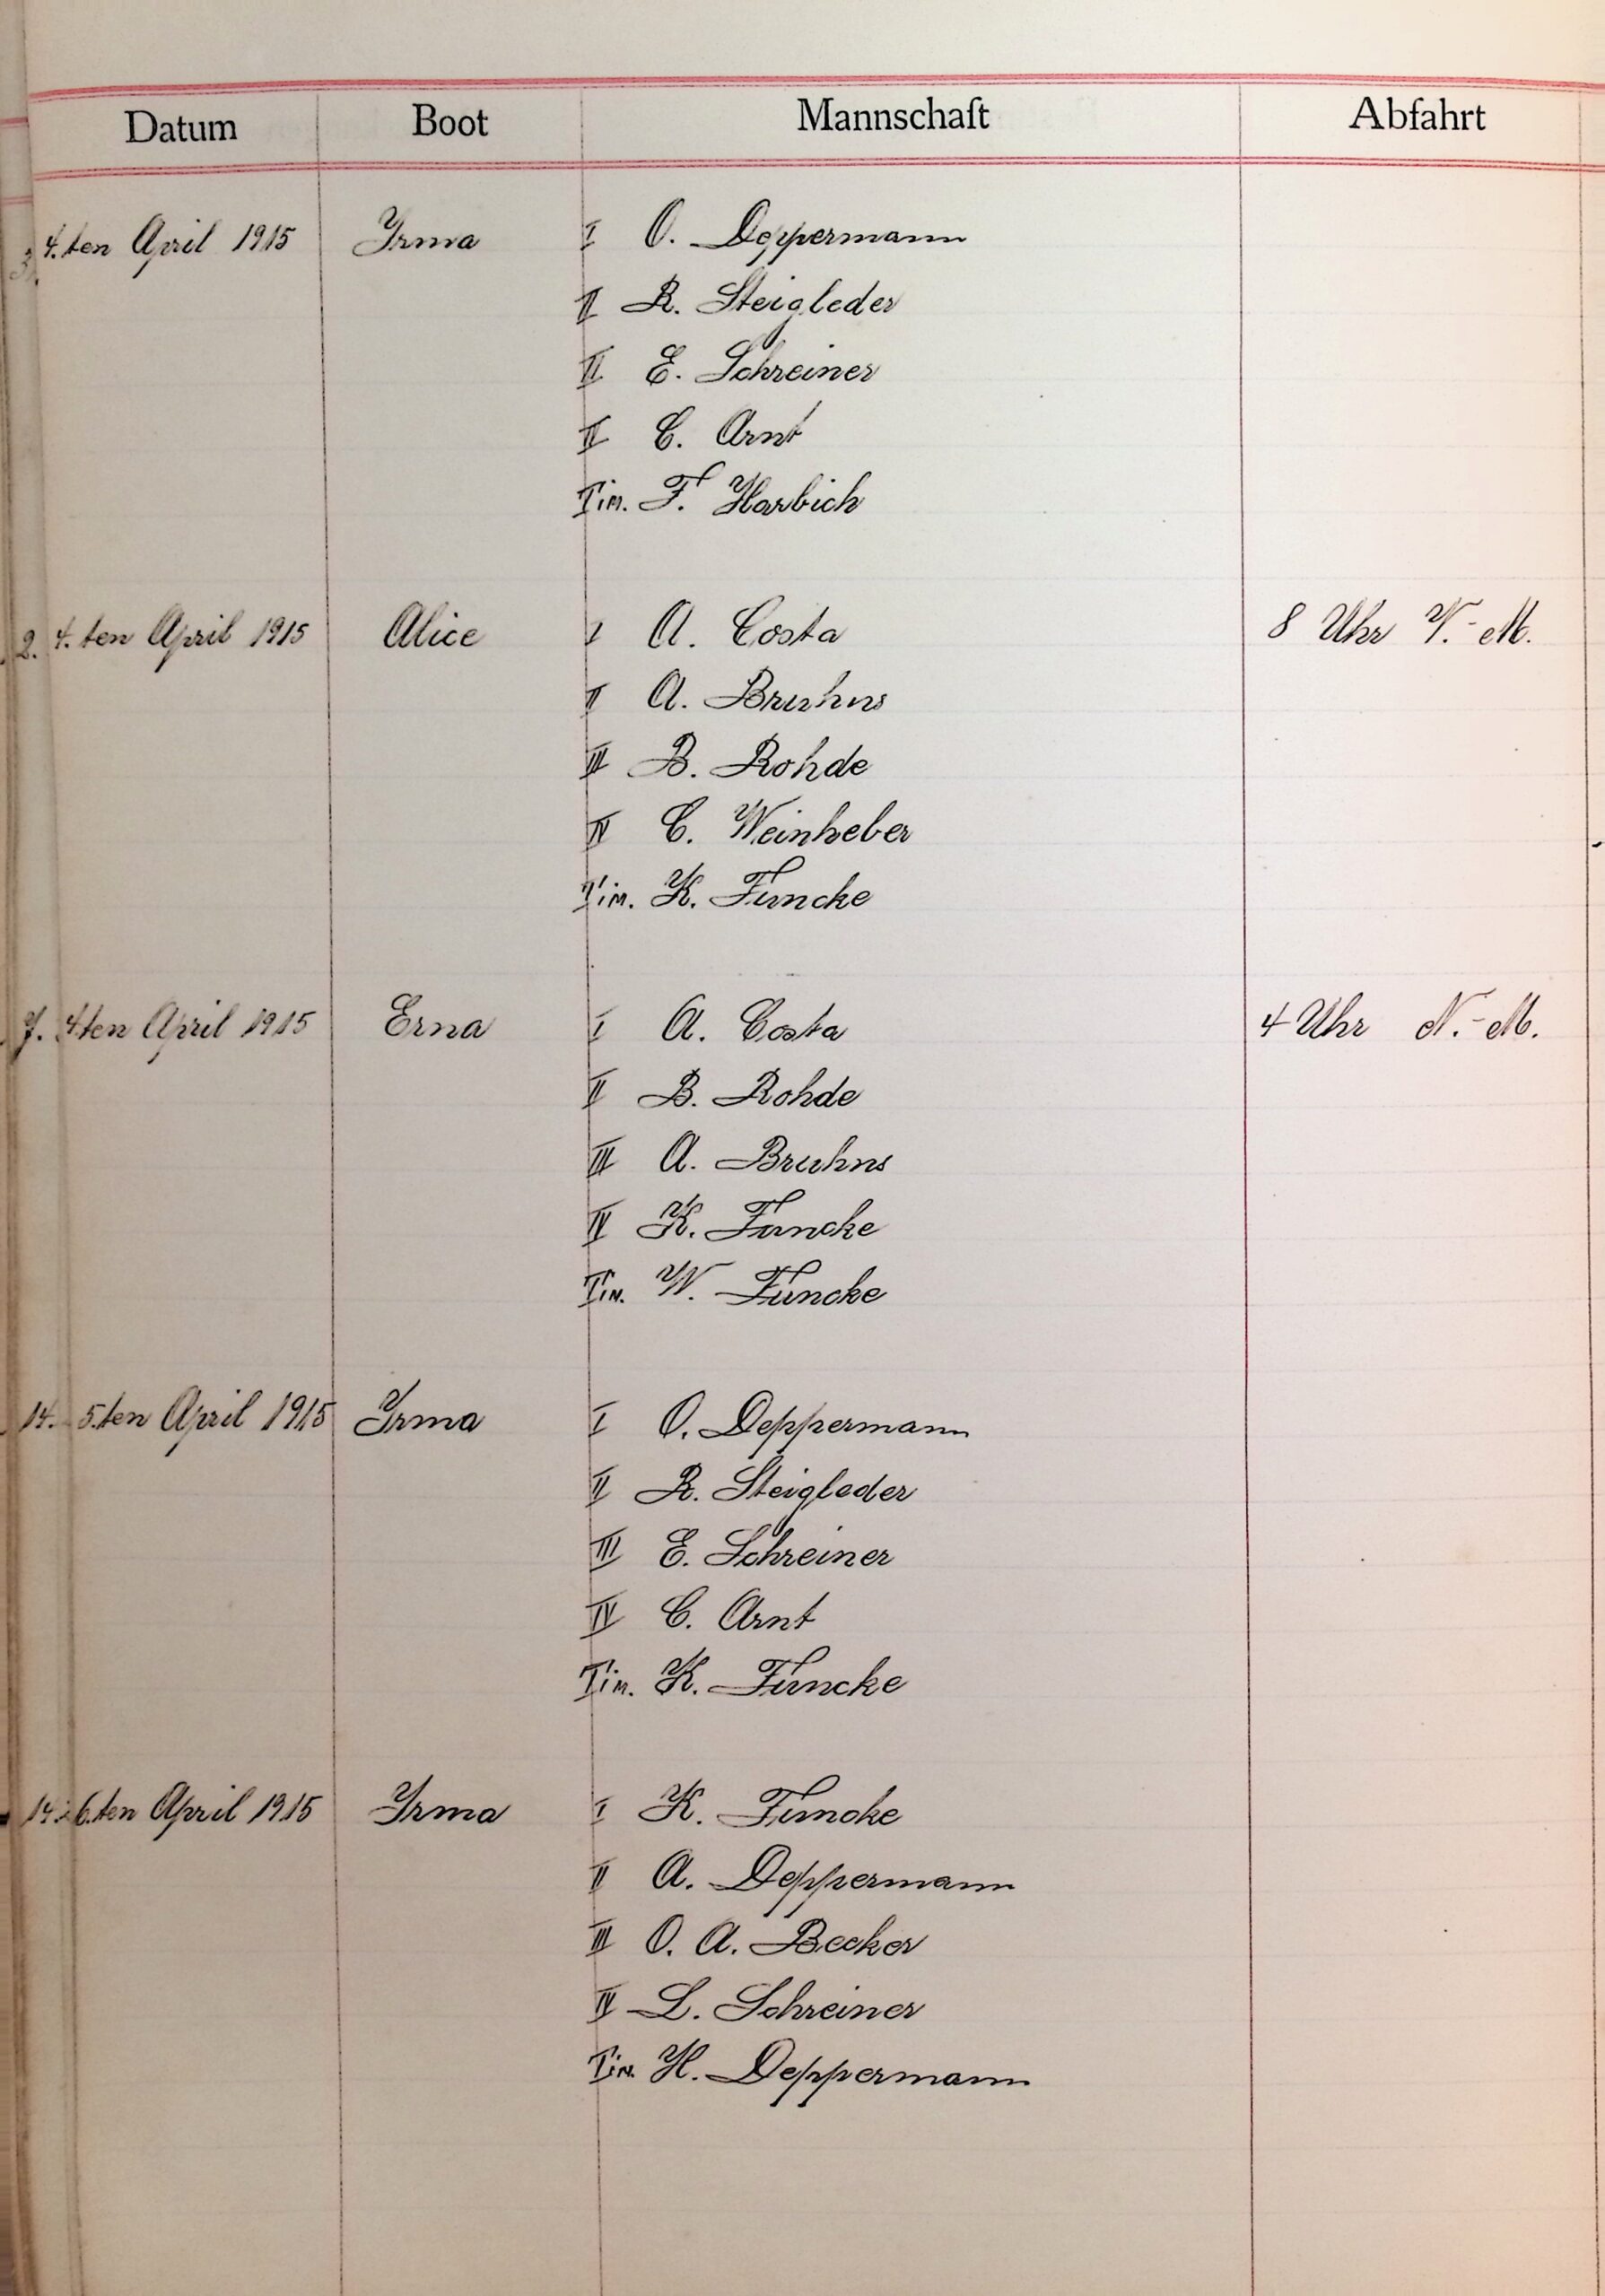 Datum Boot Mannschaft Abfahrt
3. 4.ten April 1915 Yrma I O. Deppermann
II R. Steigleder
II E. Schreiner
II C. Arnt
Tim. F. Harbich
2. 4.ten April 1915 Alice I A. Costa 8 Uhr V.-M.
II A. Bruhns
III B. Rohde
IV C. Weinheber
Tim. K. Funcke
7. 4ten April 1915 Erna I A. Costa 4 Uhr N.-M.
II B. Rohde
III A. Bruhns
IV K. Funcke
Tim. W. Funcke
14. 5.ten April 1915 Yrma I O. Deppermann
II R. Steigleder
III E. Schreiner
IV C. Arnt
Tim. K. Funcke
14. 6.ten April 1915 Yrma I K. Funcke
II A. Deppermann
III O. A. Becker
IV L. Schreiner
Tim. H. Deppermann